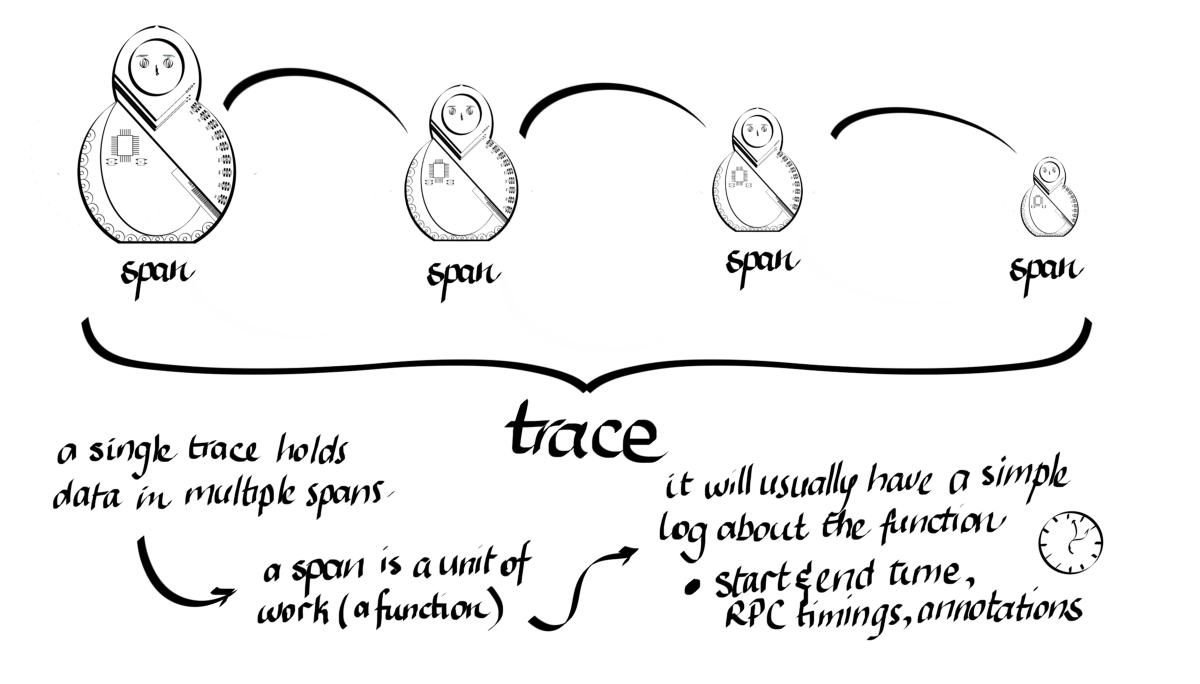 span
span
span
span
trace
a single trace holds
data in multiple spans.
a span is a unit of
work (a function)
it will usually have a simple
log about the function
• start & end time,
RPC timings, annotations